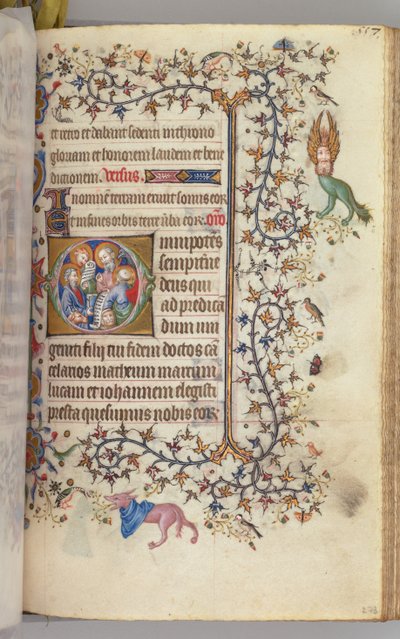 et retro et dabunt sedenti in throno
gloriam et honorem laudem et bene
dictionem. Versus.
In omnem terram exivit sonus eor
Et in fines orbis terre v̄ba eor. Oro
Omnipotēs
sempitne
deus qui
ad predicā
dum uni
geniti filij tui fidem doctos cā
celarios matheum marcum
lucam et iohannem elegisti
presta quesumus nobis eor
273